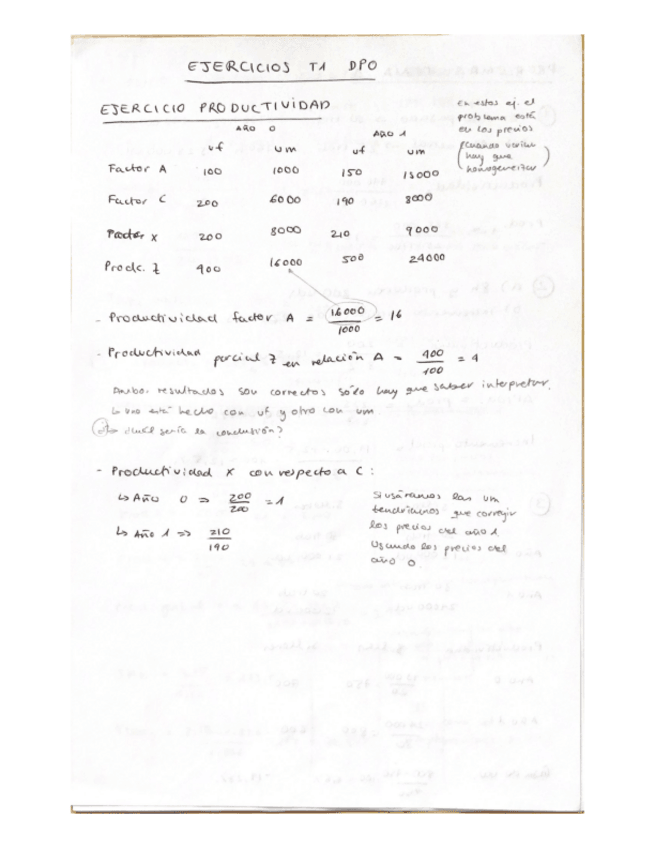 EJERCICIOS T1 DPO
EJERCICIO PRODUCTIVIDAD
En estos ej. el
problema está
en los precios
(cuando varían
hay que
homogeneizar)
AÑO 0 AÑO 1
uf um uf um
Factor A 100 1000 150 15000
Factor C 200 6000 190 8000
Factor X 200 8000 210 9000
Prodc. Z 400 16000 500 24000
- Productividad factor A = 16000 / 1000 = 16
- Productividad parcial Z en relación A = 400 / 100 = 4
Ambos resultados son correctos sólo hay que saber interpretar.
uno está hecho con uf y otro con um
¿Cuál sería la conclusión?
- Productividad X con respecto a C:
↳ AÑO 0 => 200 / 200 = 1
↳ AÑO 1 => 210 / 190
Si usáramos las um
tendríamos que corregir
los precios del año 1.
Usando los precios del
año 0.